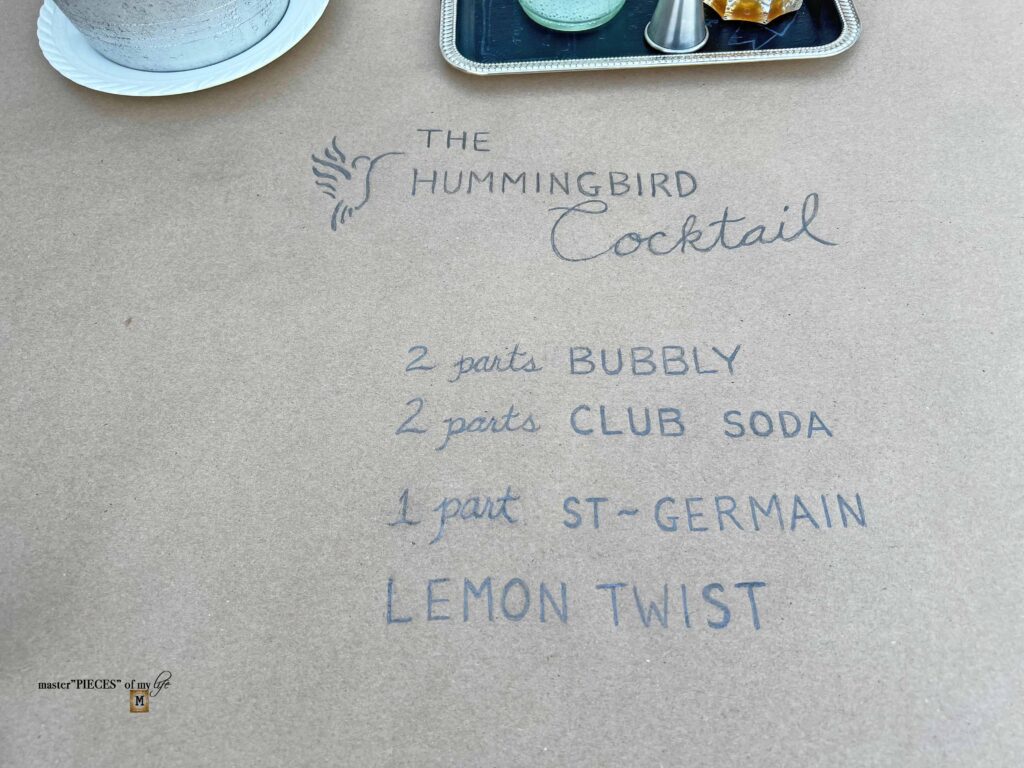 THE
HUMMINGBIRD
Cocktail
2 parts BUBBLY
2 parts CLUB SODA
1 part ST~GERMAIN
LEMON TWIST
master"PIECES" of my life
M